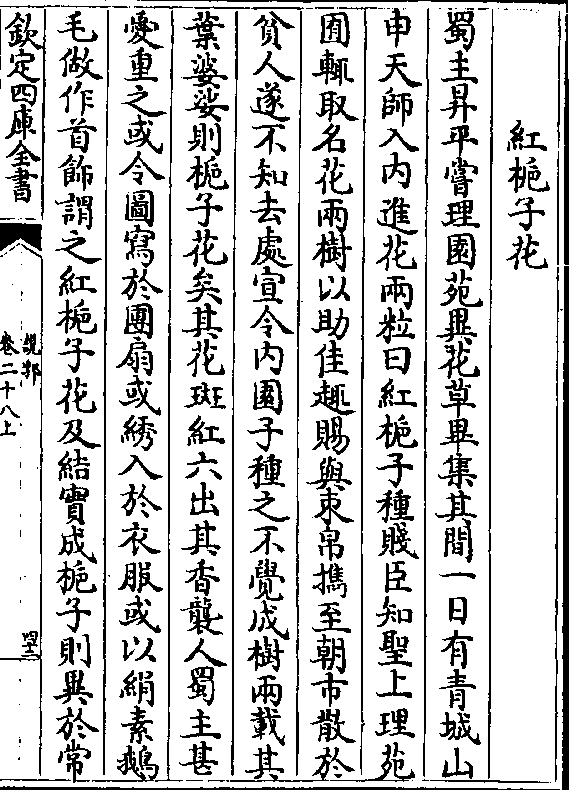 紅梔子花
蜀主昇平嘗理園苑異花草畢集其間一日有青城山
申天師入内進花兩粒曰紅梔子種賤臣知聖上理苑
囿輒取名花兩樹以助佳趣賜與束帛擕至朝市散於
貧人遂不知去處宣令内園子種之不覺成樹兩載其
葉婆娑則梔子花矣其花斑紅六出其香襲人蜀主甚
愛重之或令圖寫於團扇或綉入於衣服或以絹素鵝
毛做作首飾謂之紅梔子花及結實成梔子則異於常
欽定四庫全書
說郛
卷二十八上
四三